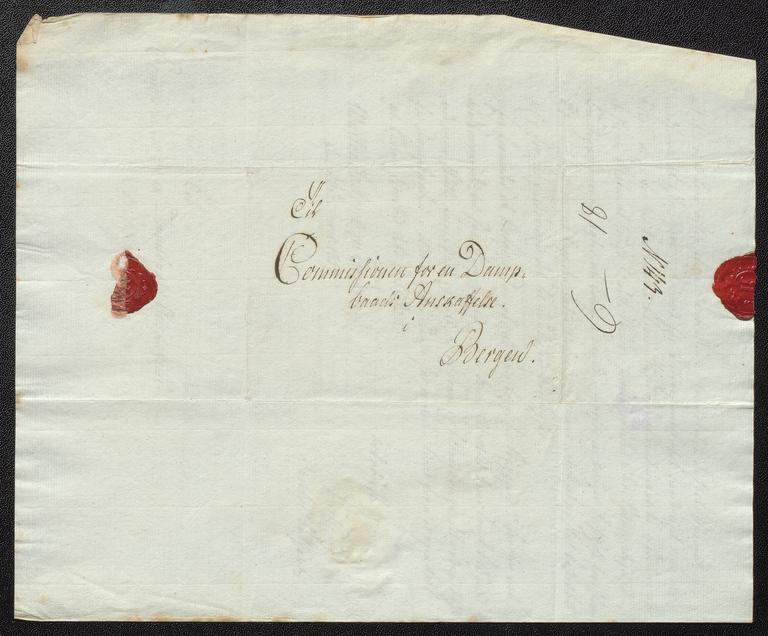 Til
Commissionen for en Damp-
baads Anskaffelse.
i
Bergen.
6 — 18